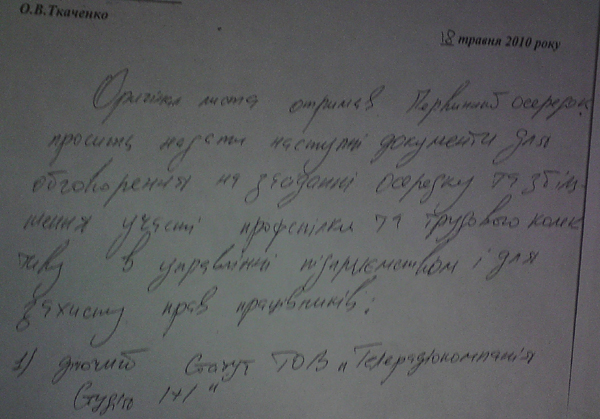 О.В.Ткаченко
18 травня 2010 року
Оригінал листа отримав Первинний осередок
просить надати наступні документи для
обговорення на засіданні осередку та збіль-
шення участі профспілки та трудового колек
тиву в управлінні підприємством і для
захисту прав працівників:
1) діючий Статут ТОВ "Телерадіокомпанія
Студія 1+1"